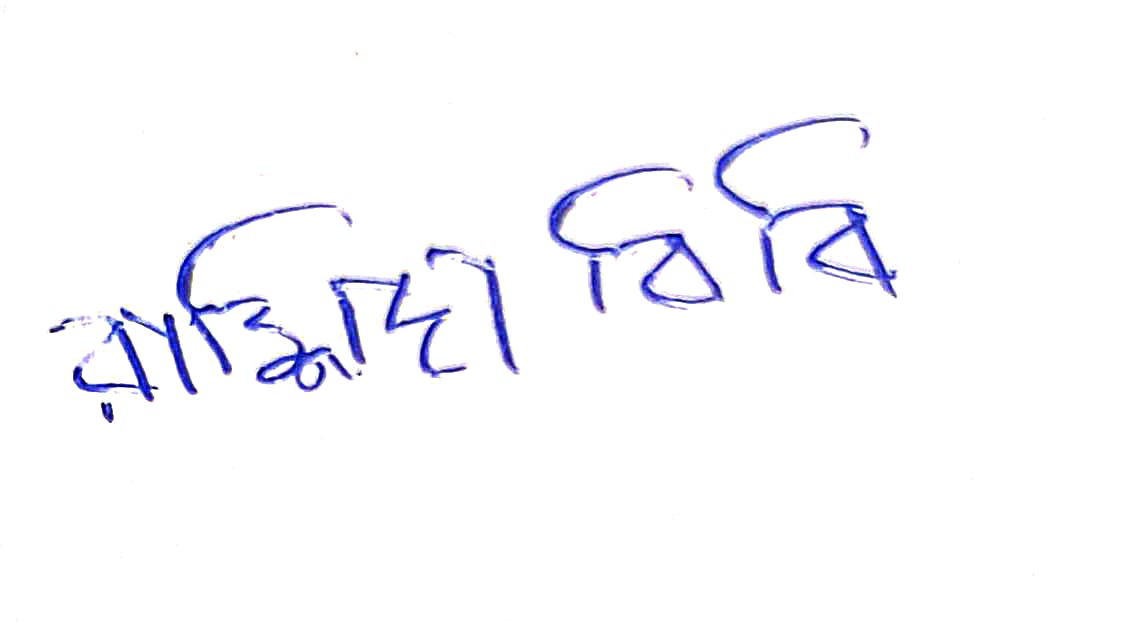 রাশিদা বিবি